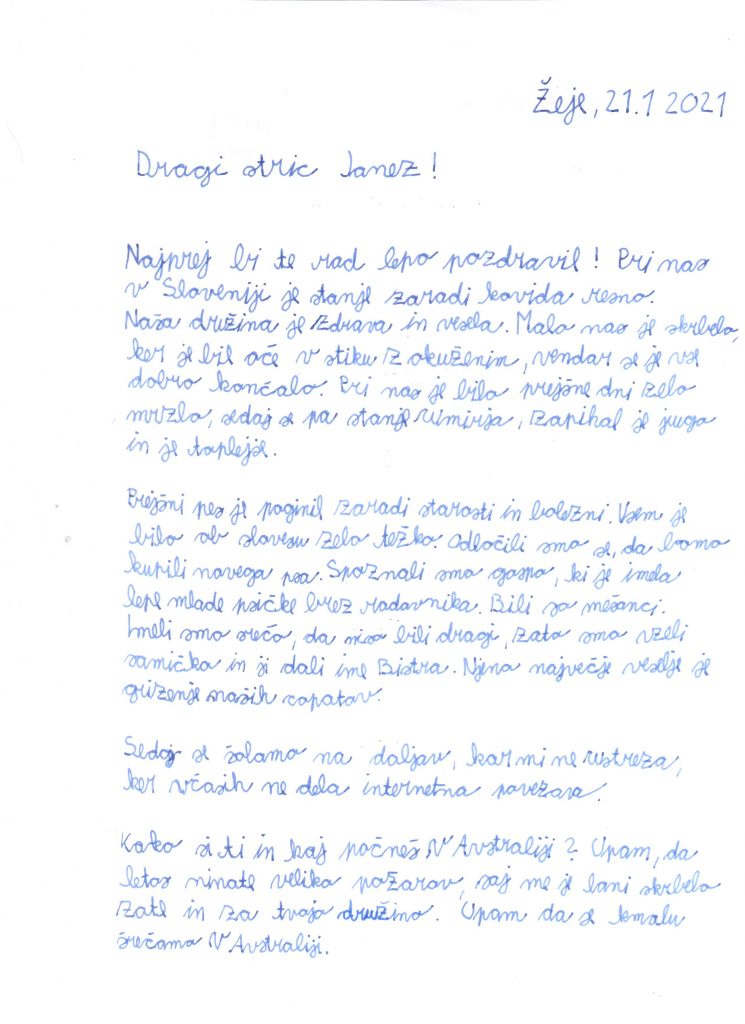 Žeje, 21.1 2021
Dragi stric Janez!
Najprej bi te rad lepo pozdravil! Pri nas
v Sloveniji je stanje zaradi kovida resno.
Naša družina je zdrava in vesela. Malo nas je skrbelo,
ker je bil oče v stiku z okuženim, vendar se je vse
dobro končalo. Pri nas je bilo prejšne dni zelo
mrzlo, sedaj se pa stanje umirja, zapihal je jugo
in je toplejše.
Prejšni pes je poginil zaradi starosti in bolezni. Vsem je
bilo ob slovesu zelo težko. Odločili smo se, da bomo
kupili novega psa. Spoznali smo gospo, ki je imela
lepe mlade psičke brez rodovnika. Bili so mešanci.
Imeli smo srečo, da niso bili dragi, zato smo vzeli
samičko in ji dali ime Bistra. Njeno največje veselje je
griženje naših copatov.
Sedaj se šolamo na daljavo, kar mi ne ustreza,
ker včasih ne dela internetna povezava.
Kako si ti in kaj počneš v Avstraliji? Upam, da
letos nimate veliko požarov, saj me je lani skrbelo
zate in za tvojo družino. Upam da se kmalu
srečamo v Avstraliji.